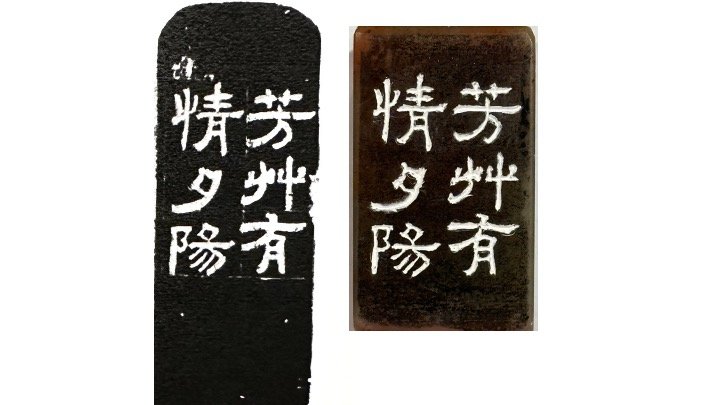 芳艸有
情夕陽
芳艸有
情夕陽